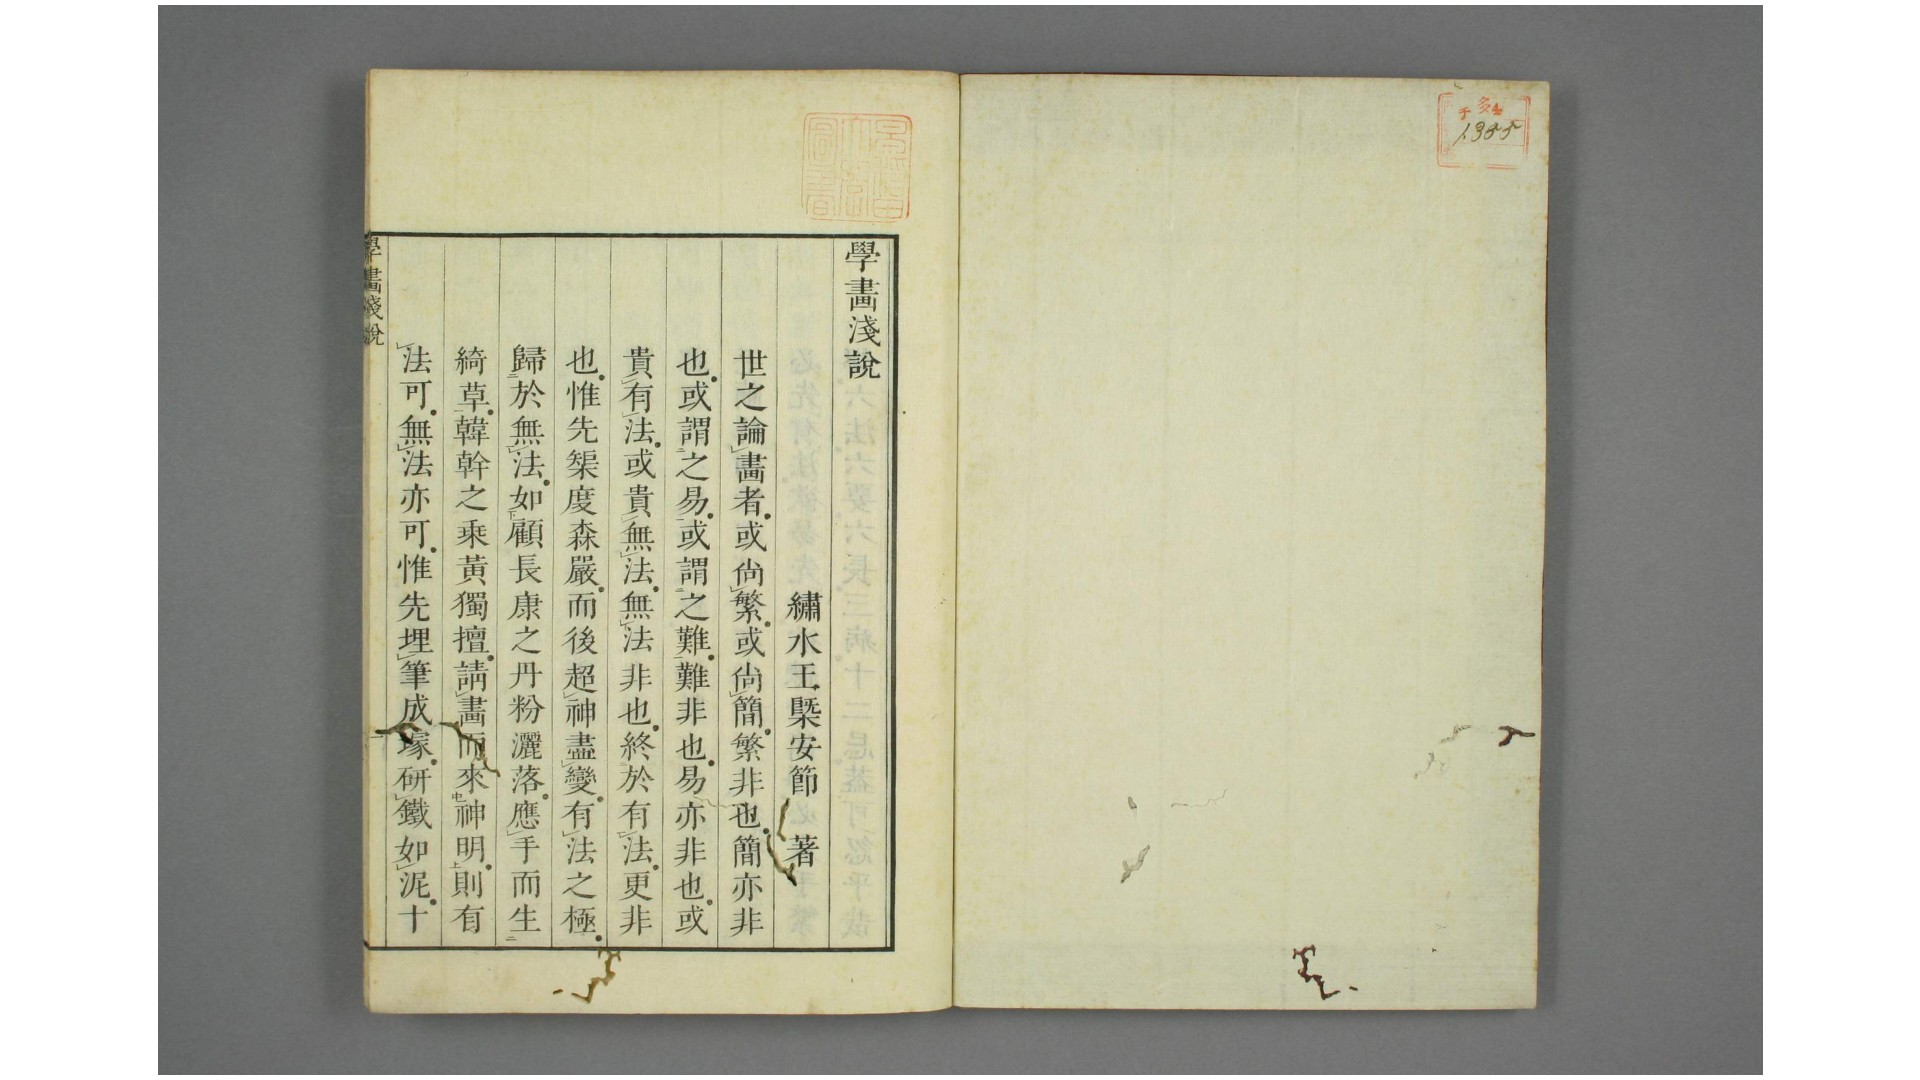 多
1355
學畫淺說
繡水王槩安節 著
世之論畫者或尚繁或尚簡繁非也簡亦非
也或謂之易或謂之難難非也易亦非也或
貴有法或貴無法無法非也終於有法更非
也惟先榘度森嚴而後超神盡變有法之極
歸於無法如顧長康之丹粉灑落應手而生
綺草韓幹之乘黃獨擅請畫而來神明則有
法可無法亦可惟先埋筆成塚研鐵如泥十
學畫淺說